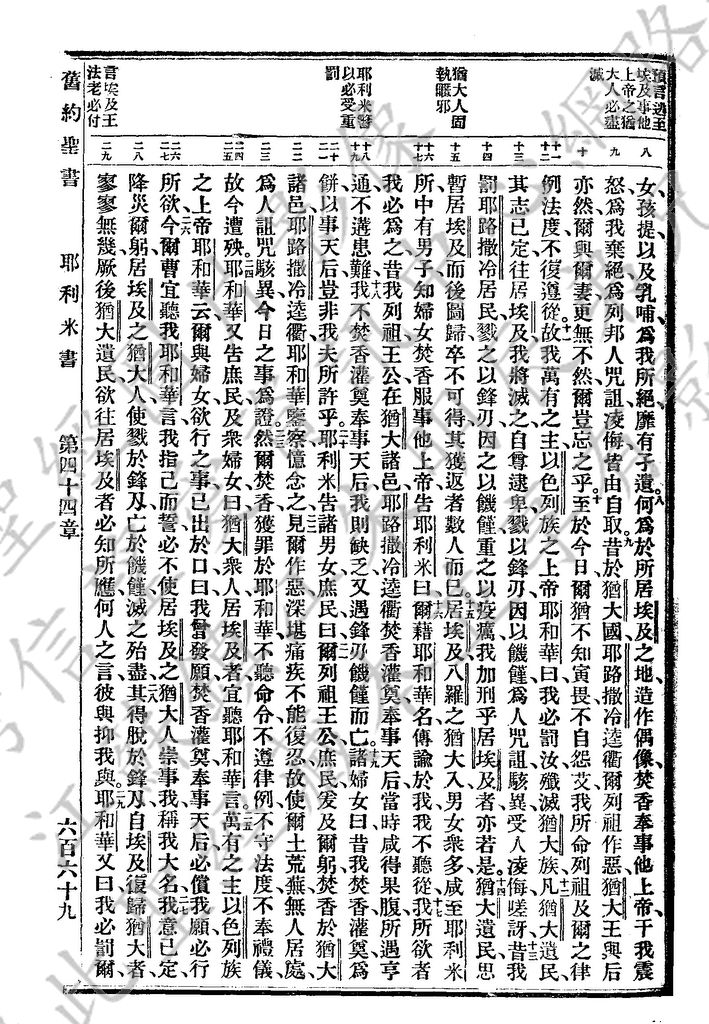 預言逃至
埃及事他
上帝之猶
大人必盡
滅
猶大人固
執暱邪
耶利米警
以必受重
罰
言埃及王
法老必付
八
九
十
十一
十二
十三
十四
十五
十六
十七
十八
十九
二十
二一
二二
二三
二四
二五
二六
二七
二八
二九
女孩提以及乳哺爲我所絕靡有孑遺八何爲於所居埃及之地造作偶像焚香奉事他上帝干我震
怒爲我棄絕爲列邦人咒詛凌侮皆由自取九昔於猶大國耶路撒冷逵衢爾列祖作惡猶大王與后
亦然爾與爾妻更無不然爾豈忘之乎十至於今日爾猶不知寅畏不自怨艾我所命列祖及爾之律
例法度不復遵從十一故我萬有之主以色列族之上帝耶和華曰我必罰汝殲滅猶大族十二凡猶大遺民
其志已定往居埃及我將滅之自尊逮卑戮以鋒刃因以饑饉爲人咒詛駭異受人凌侮嗟訝十三昔我
罰耶路撒冷居民戮之以鋒刃因之以饑饉重之以疫癘我加刑乎居埃及者亦若是十四猶大遺民思
暫居埃及而後圖歸卒不可得其獲返者數人而已十五居埃及八羅之猶大人男女衆多咸至耶利米
所中有男子知婦女焚香服事他上帝告耶利米曰十六爾藉耶和華名傳諭於我我不聽從十七我所欲者
我必爲之昔我列祖王公在猶大諸邑耶路撒冷逵衢焚香灌奠奉事天后當時咸得果腹所遇亨
通不遘患難十八我不焚香灌奠奉事天后我則缺乏又遇鋒刃饑饉而亡十九諸婦女曰昔我焚香灌奠爲
餅以事天后豈非我夫所許乎二十耶利米告諸男女庶民曰二一爾列祖王公庶民爰及爾躬焚香於猶大
諸邑耶路撒冷逵衢耶和華鑒察憶念之二二見爾作惡深堪痛疾不能復忍故使爾土荒蕪無人居處
爲人詛咒駭異今日之事爲證二三然爾焚香獲罪於耶和華不聽命令不遵律例不守法度不奉禮儀
故今遭殃二四耶和華又告庶民及衆婦女曰猶大衆人居埃及者宜聽耶和華言二五萬有之主以色列族
之上帝耶和華云爾與婦女欲行之事已出於口曰我曾發願焚香灌奠奉事天后必償我願必行
所欲二六今爾曹宜聽我耶和華言我指己而誓必不使居埃及之猶大人崇事我稱我大名二七我意已定
降災爾躬居埃及之猶大人使戮於鋒刃亡於饑饉滅之殆盡二八其得脫於鋒刃自埃及復歸猶大者
寥寥無幾厥後猶大遺民欲往居埃及者必知所應何人之言彼與抑我與二九耶和華又曰我必罰爾
舊約聖書 耶利米書 第四十四章 六百六十九